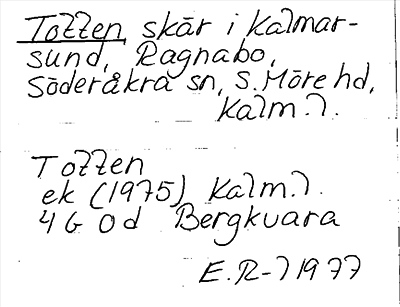 Totten, skär i Kalmar-
sund, Ragnabo,
Söderåkra sn, S. Möre hd,
Kalm. l.
Totten
ek (1975) Kalm. l.
4G 0d Bergkvara
E.R-l 1977